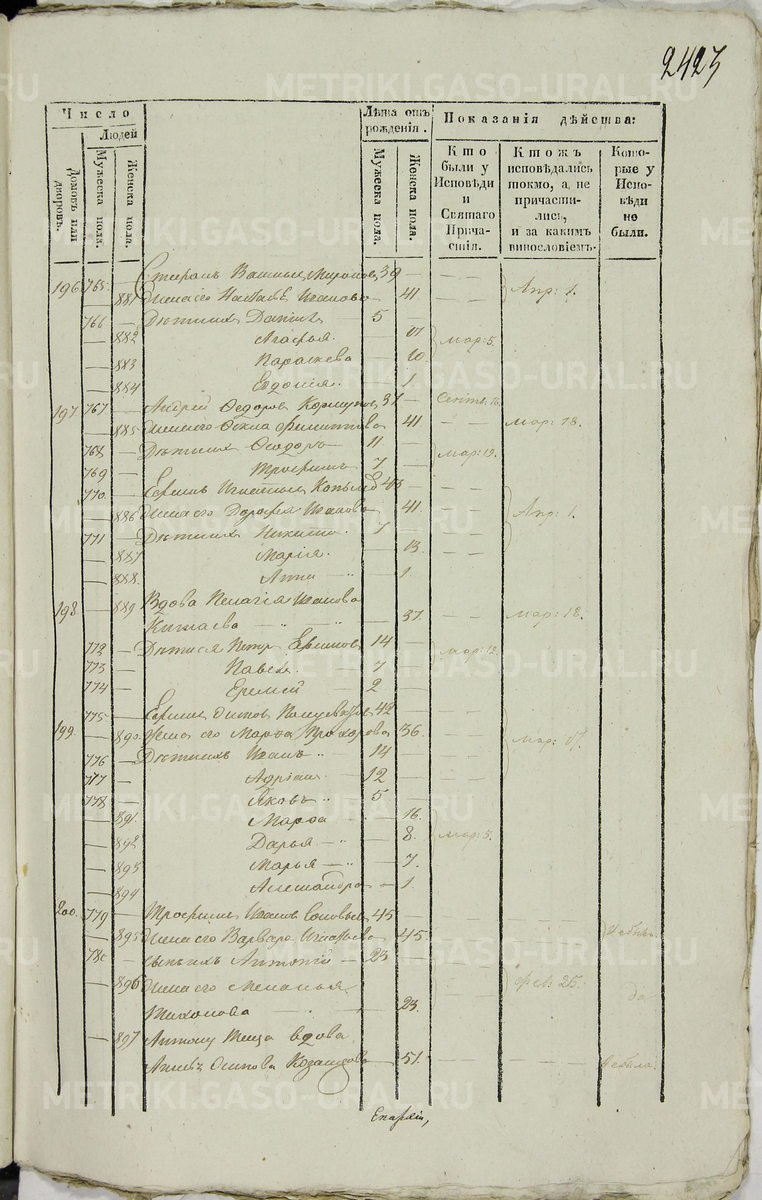 2423
Число
Людей
Домовъ или дворовъ.
Мужеска пола.
Женска пола.
Лѣта отъ рожденія.
Мужеска пола.
Женска пола.
Показанія дѣйства:
Кто были у Исповѣди и Святаго Прича-стія.
Ктожъ исповѣдались токмо, а не причасти-лись, и за какимъ винословіемъ.
Кото-рые у Испо-вѣди не были.
196 765 39
881 Жена его Ивановa 41 Апр: 1.
766 Дѣти ихъ Данiилъ 5
882 Агафья Мар: 5.
883 Параскева 10
884 Евдокія 1
197 767 Андрей Ѳедоровъ 37 Сент. 16
885 Жена его Ѳекла Филиппова 41 Мар: 18.
768 Дѣти ихъ Ѳеодоръ 11 Мар: 19.
769 Трофимъ 7
770 Ефимъ Игнатьевъ 43
886 Жена его Дарья Иванова 41. Апр: 1.
771 Дѣти ихъ Никита 7
887 Марія 13
888 Анна 1
198 889 Вдова Пелагія Иванова
37. Мар: 18.
772 Дѣти ея Петръ Ефимовъ 14 Мар: 12
773 Павелъ 7
774 Еремей 2
199 775 Ефимъ 42
890 Жена его Марѳа Прохорова 36
776 Дѣти ихъ Иванъ 14 Мар: 17.
777 Адріанъ 12
778 Яковъ 5
891 Марѳа 16.
892 Дарья 8. Мар: 5.
893 Марья 7.
894 Александра 1
200 779 Трофимъ Ивановъ Соловьевъ 45
895 Жена его Варвара Игнатьева 45
780 Сынъ ихъ Антоній 23
896 Жена его Меланья Фев: 25.
Тихонова 23.
897 Антону теща вдова
Осипова 51. Не была.
Епархіи,
METRIKI.GASO-URAL.RU